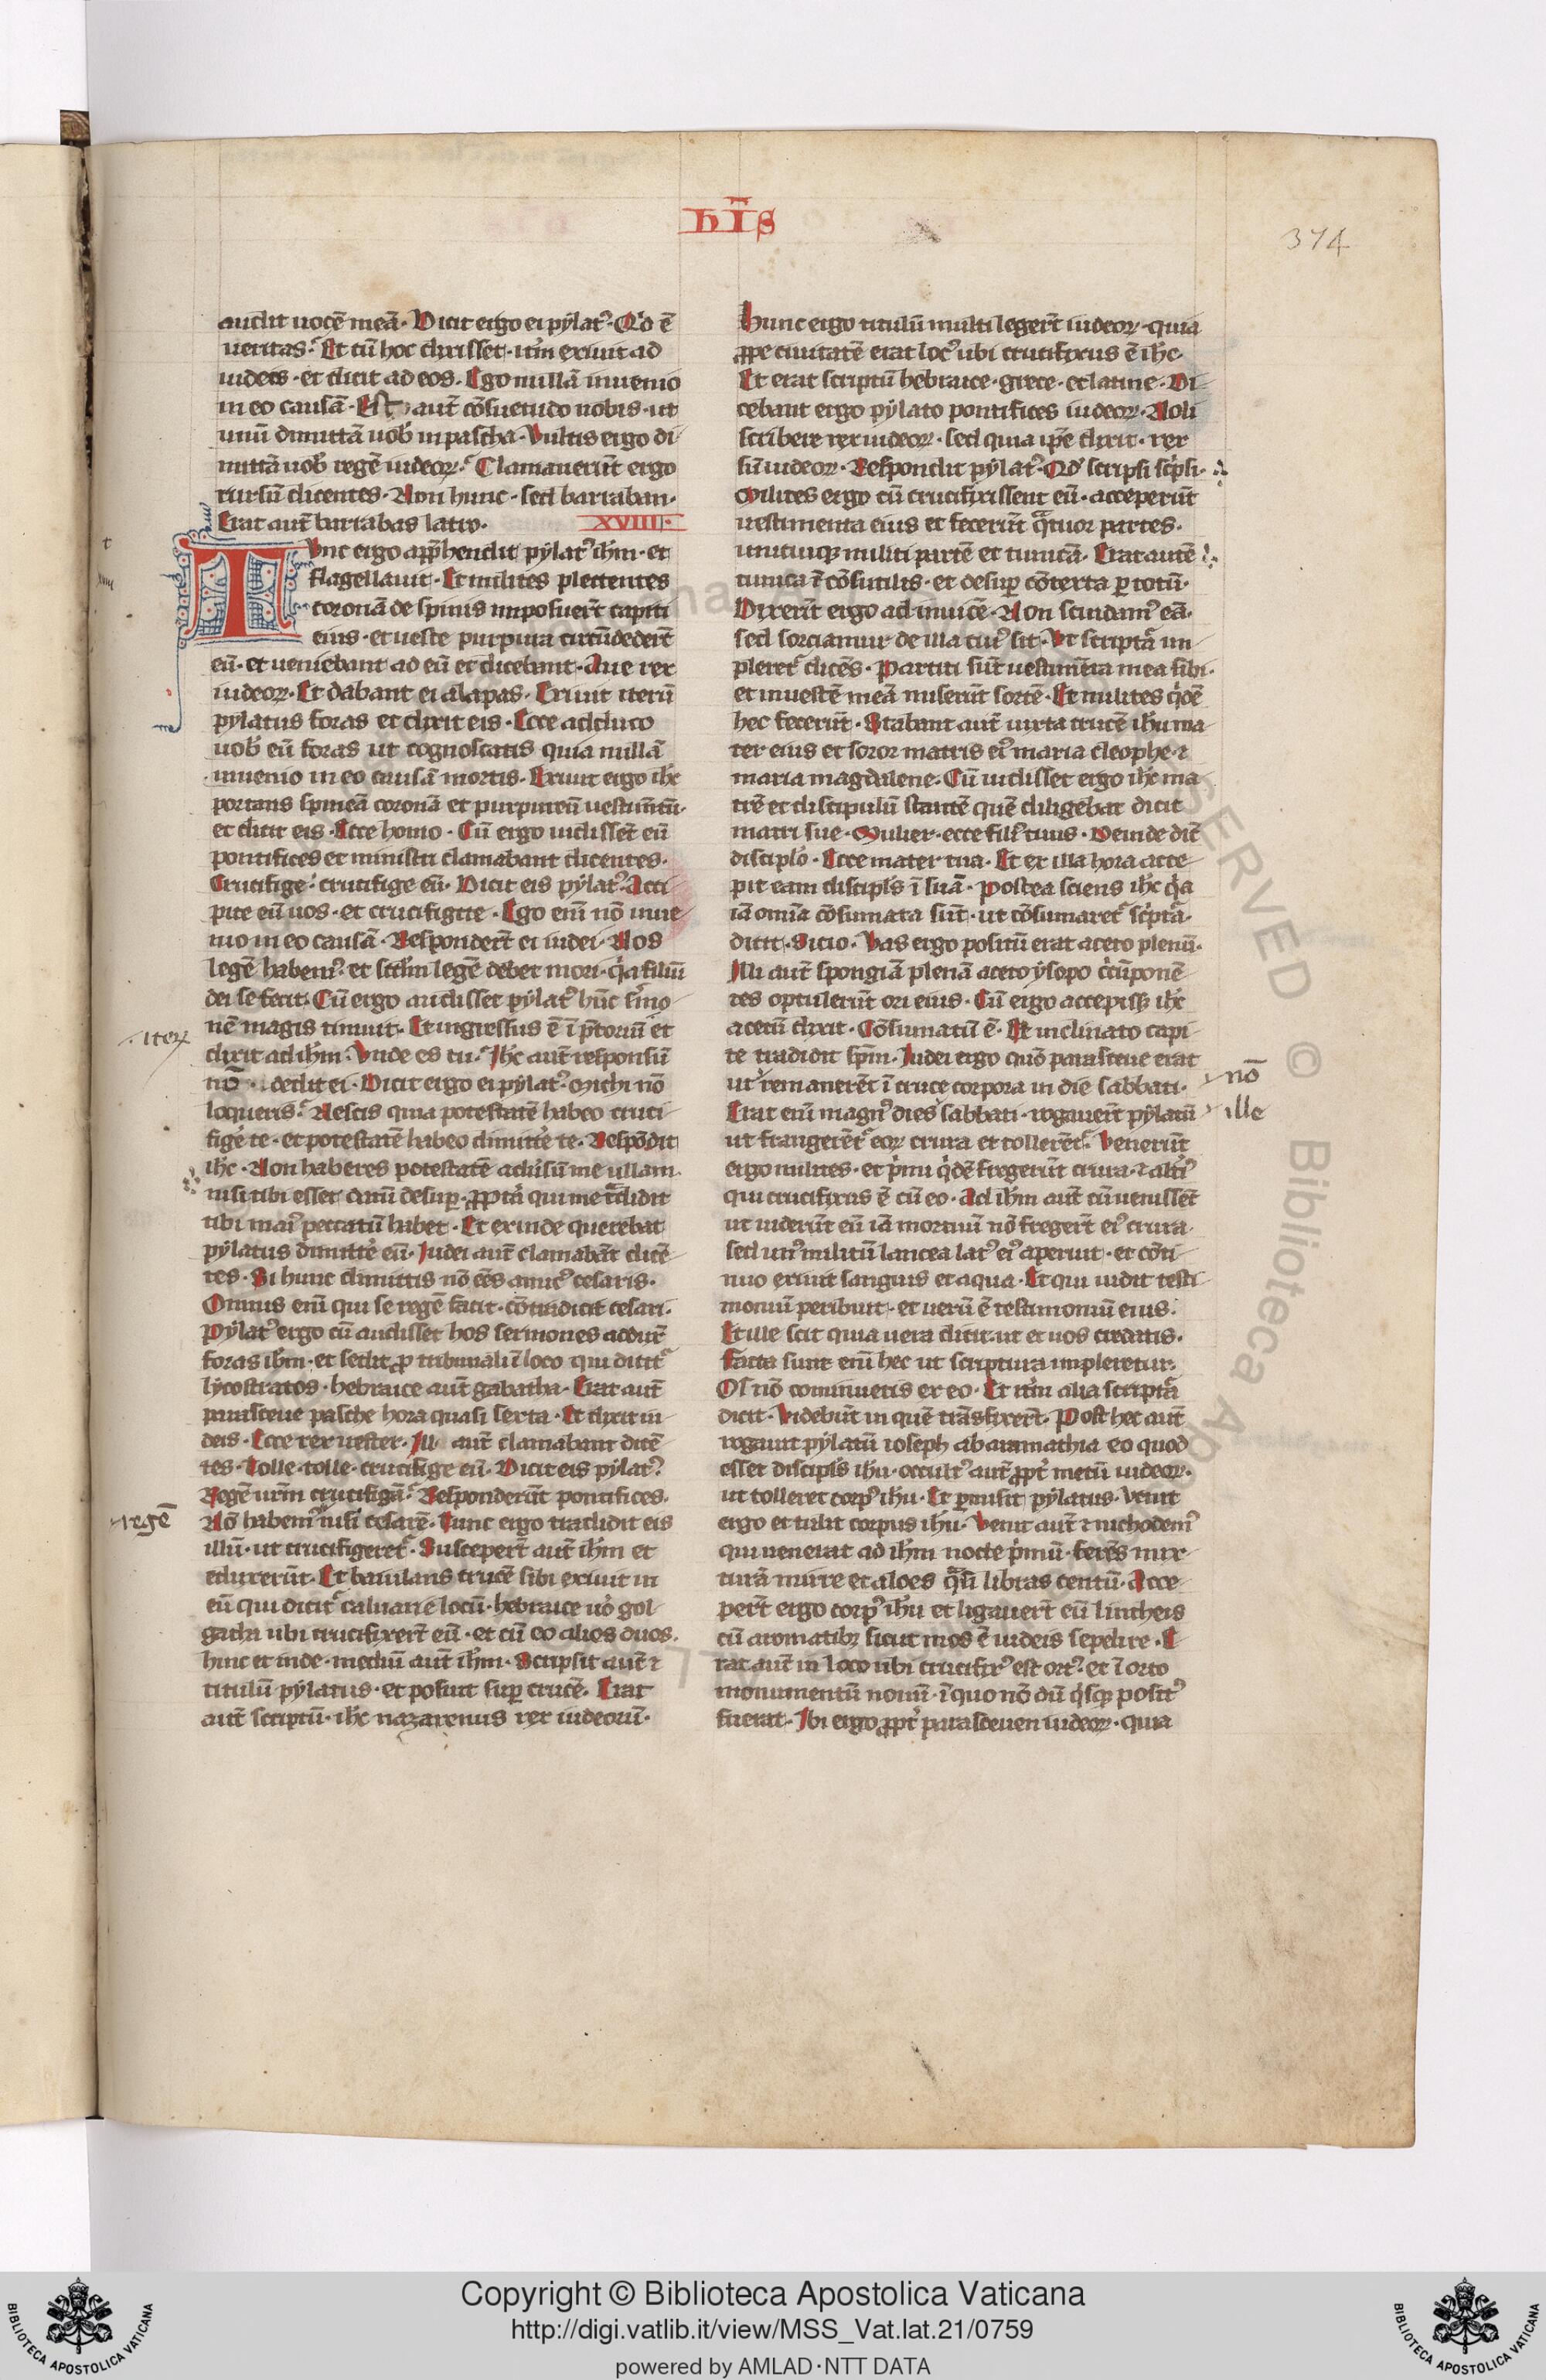 hīs
374
audit uocē meā· Dicit ergo ei pylatꝰ· Qd̓ ē
ueritas· Et cū hoc dixisset· itm̄ exiuit ad
iudeos· et dicit ad eos· Ego nullā inuenio
in eo causā· Est aut̄ cōsuetudo uobis· ut
unū dimittā uob̓ in pascha· Vultis ergo di
mittā uob̓ regē iudeoꝝ· Clamauerūt ergo
rursū dicentes· Non hunc· sed barraban·
Erat aut̄ barrabas latro· XVIIII·
Tunc ergo apprħendit pylatꝰ ihm̄· et
flagellauit· Et milites plectentes
coronā de spinis imposuer̄t capiti
eius· et ueste purpura circūdeder̄t
eū· et ueniebant ad eū et dicebant· Aue rex
iudeoꝝ· Et dabant ei alapas· Exiuit iterū
pylatus foras et dixit eis· Ecce adduco
uob̓ eū foras ut cognoscatis quia nullā
inuenio in eo causā mortis· Exiuit ergo ihc̄
portans spineā coronā et purpureū uestim̄tū·
et dicit eis· Ecce homo· Cū ergo uidisset̄ eū
pontifices et ministri clamabant dicentes·
Crucifige· crucifige eū· Dicit eis pylatꝰ· Acci
pite eū uos· et crucifigite· Ego eni̅ nō inue
nio in eo causā· Responder̄t ei iudei· Nos
legē habemꝰ· et scd̄m legē debet mori· q̓a filiū
dei se fecit· Cū ergo audisset pylatꝰ hūc sm̓o
nē magis timuit· Et ingressus ē ī p̄toriū et
· iteꝝ
dixit ad ihm̄· Vnde es tu· Ihc̄ aut̄ responsū
nō dedit ei· Dicit ergo ei pylatꝰ· Michi nō
loqueris· Nescis quia potestatē habeo cruci
fige̓ te· et potestatē habeo dimitte̓ te· Respōdit
ihc̄· Non haberes potestatē adu̓sū me ullam·
nisi tibi esset datū desuꝑ· ꝓpt̓ea qui me tᵃdidit
tibi maiꝰ peccatū habet· Et exinde querebat
pylatus dimitte̓ eū· Iudei aut̄ clamabāt dicē
tes· Si hunc dimittis nō es amicꝰ cesaris·
Omnis eni̅ qui se regē facit· cōtradicit cesari·
Pylatꝰ ergo cū audisset hos sermones addux̄
foras ihm̄· et sedit ꝓ tribunali ī loco qui dicit᷑
lycostratos· hebraice aut̄ gabatha· Erat aut̄
parasceue pasche hora quasi sexta· Et dixit iu
deis· Ecce rex uester· Illi aut̄ clamabant dicē
tes· Tolle· tolle· crucifige eū· Dicit eis pylatꝰ·
Regē ur̄m crucifigā· Responderūt pontifices·
regē
Nō habemꝰ nisi cesarē· Tunc ergo tradidit eis
illū· ut crucifigeret᷑· Susceper̄t aut̄ ihm̄ et
eduxerūt· Et baiulans crucē sibi exiuit in
eū qui dicit᷑ caluarie locū· hebraice uo̓ gol
gatha ubi crucifixer̄t eū· et cū eo alios duos·
hinc et inde· mediū aut̄ ihm̄· Scripsit aut̄ ⁊
titulū pylatus· et posuit suꝑ crucē· Erat
aut̄ scriptū· ihc̄ nazarenus rex iudeorū·
Hunc ergo titulū multi leger̄t iudeoꝝ· quia
ꝓpe ciuitatē erat locꝰ ubi crucifixus ē ihc̄·
Et erat scriptū hebraice· grece· et latine· Di
cebant ergo pylato pontifices iudeoꝝ· Noli
scribere rex iudeoꝝ· sed quia ip̄e dixit· rex
sū iudeoꝝ· Respondit pylatꝰ· Qd̓ scripsi sc̓psi·
Milites ergo cū crucifixissent eū· acceperūt
uestimenta eius et fecerūt qᵃtuor partes·
unicuiqꝫ militi partē et tunicā· Erat autē
tunica ī cōsutilis· et desuꝑ cōtexta ꝑ totū·
Dixerūt ergo ad inuicē· Non scindamꝰ eā·
sed sorciamur de illa cuiꝰ sit· Vt scriptᵃ im
pleret᷑ dicēs· Partiti sūt uestimēta mea sibi·
et in uestē meā miserūt sortē· Et milites q̓dē
hec fecerūt· Stabant aut̄ iuxta crucē ihu ma
ter eius et soror matris eiꝰ maria cleophe· ⁊
maria magdalene· Cū uidisset ergo ihc̄ ma
trē et discipulū stantē quē diligebat dicit
matri sue· Mulier· ecce filiꝰ tuus· Deinde dic̄
discipl̓o· Ecce mater tua· Et ex illa hora acce
pit eam discipl̓s ī suā· Postea sciens ihc̄ q̓a
iā om̄ia cōsumata sūt· ut cōsumaret᷑ sc̓ptᵃ·
dicit· Sitio· Vas ergo positū erat aceto plenū·
Illi aut̄ spongiā plenā aceto ysopo c̓cūponē
tes optulerūt ori eius· Cū ergo accepissꝫ ihc̄
acetū dixit· Cōsumatū ē· Et inclinato capi
te tradidit sp̄m· Iudei ergo quō parasceue erat
ut remanerēt ī cruce corpora in die sabbati·
nō
Erat eni̅ magnꝰ dies sabbati· rogauer̄t pylatū
ille
ut frangerēt᷑ eoꝝ crura et tollerēt᷑· Venerūt
ergo milites· et p̓mi q̓dē fregerūt crura· ⁊ alt̓iꝰ
qui crucifixus ē cū eo· Ad ihm̄ aut̄ cū uenissēt
ut uiderūt eū iā mortuū nō freger̄t eiꝰ crura·
sed unꝰ militū lancea latꝰ eiꝰ aperuit· et cōti
nuo exiuit sanguis et aqua· Et qui uidit testi
moniū peribuit· et uerū ē testimoniū eius·
Et ille scit quia uera dicit· ut et uos credatis·
Facta sunt eni̅ hec ut scriptura impleretur·
Os nō cominuetis ex eo· Et itm̄ alia scriptᵃ
dicit· Videbūt in quē trāsfixer̄t· Post hec aut̄
rogauit pylatū ioseph ab arimathia eo quod
esset discipl̓s ihu· occultꝰ aut̄ ꝓpt̓ metū iudeoꝝ·
ut tolleret corpꝰ ihu· Et ꝑmisit pylatus· Venit
ergo et tulit corpus ihu· Venit aut̄ ⁊ nichodemꝰ
qui uenerat ad ihm̄ nocte p̓mū· ferēs mix
turā mirre et aloes qᵃsi libras centū· Acce
per̄t ergo corpꝰ ihu et ligauer̄t eū lintheis
cū aromatibꝫ sicut mos ē iudeis sepelire· E
rat aut̄ in loco ubi crucifixꝰ est ortꝰ· et ī orto
monumentū nouū· ī quo nō dū q̓sꝗ̃ positꝰ
fuerat· Ibi ergo ꝓpt̓ parasceuen iudeoꝝ· quia
Copyright © Biblioteca Apostolica Vaticana
http://digi.vatlib.it/view/MSS_Vat.lat.21/0759
powered by AMLAD·NTT DATA
BIBLIOTECA APOSTOLICA VATICANA
BIBLIOTECA APOSTOLICA VATICANA